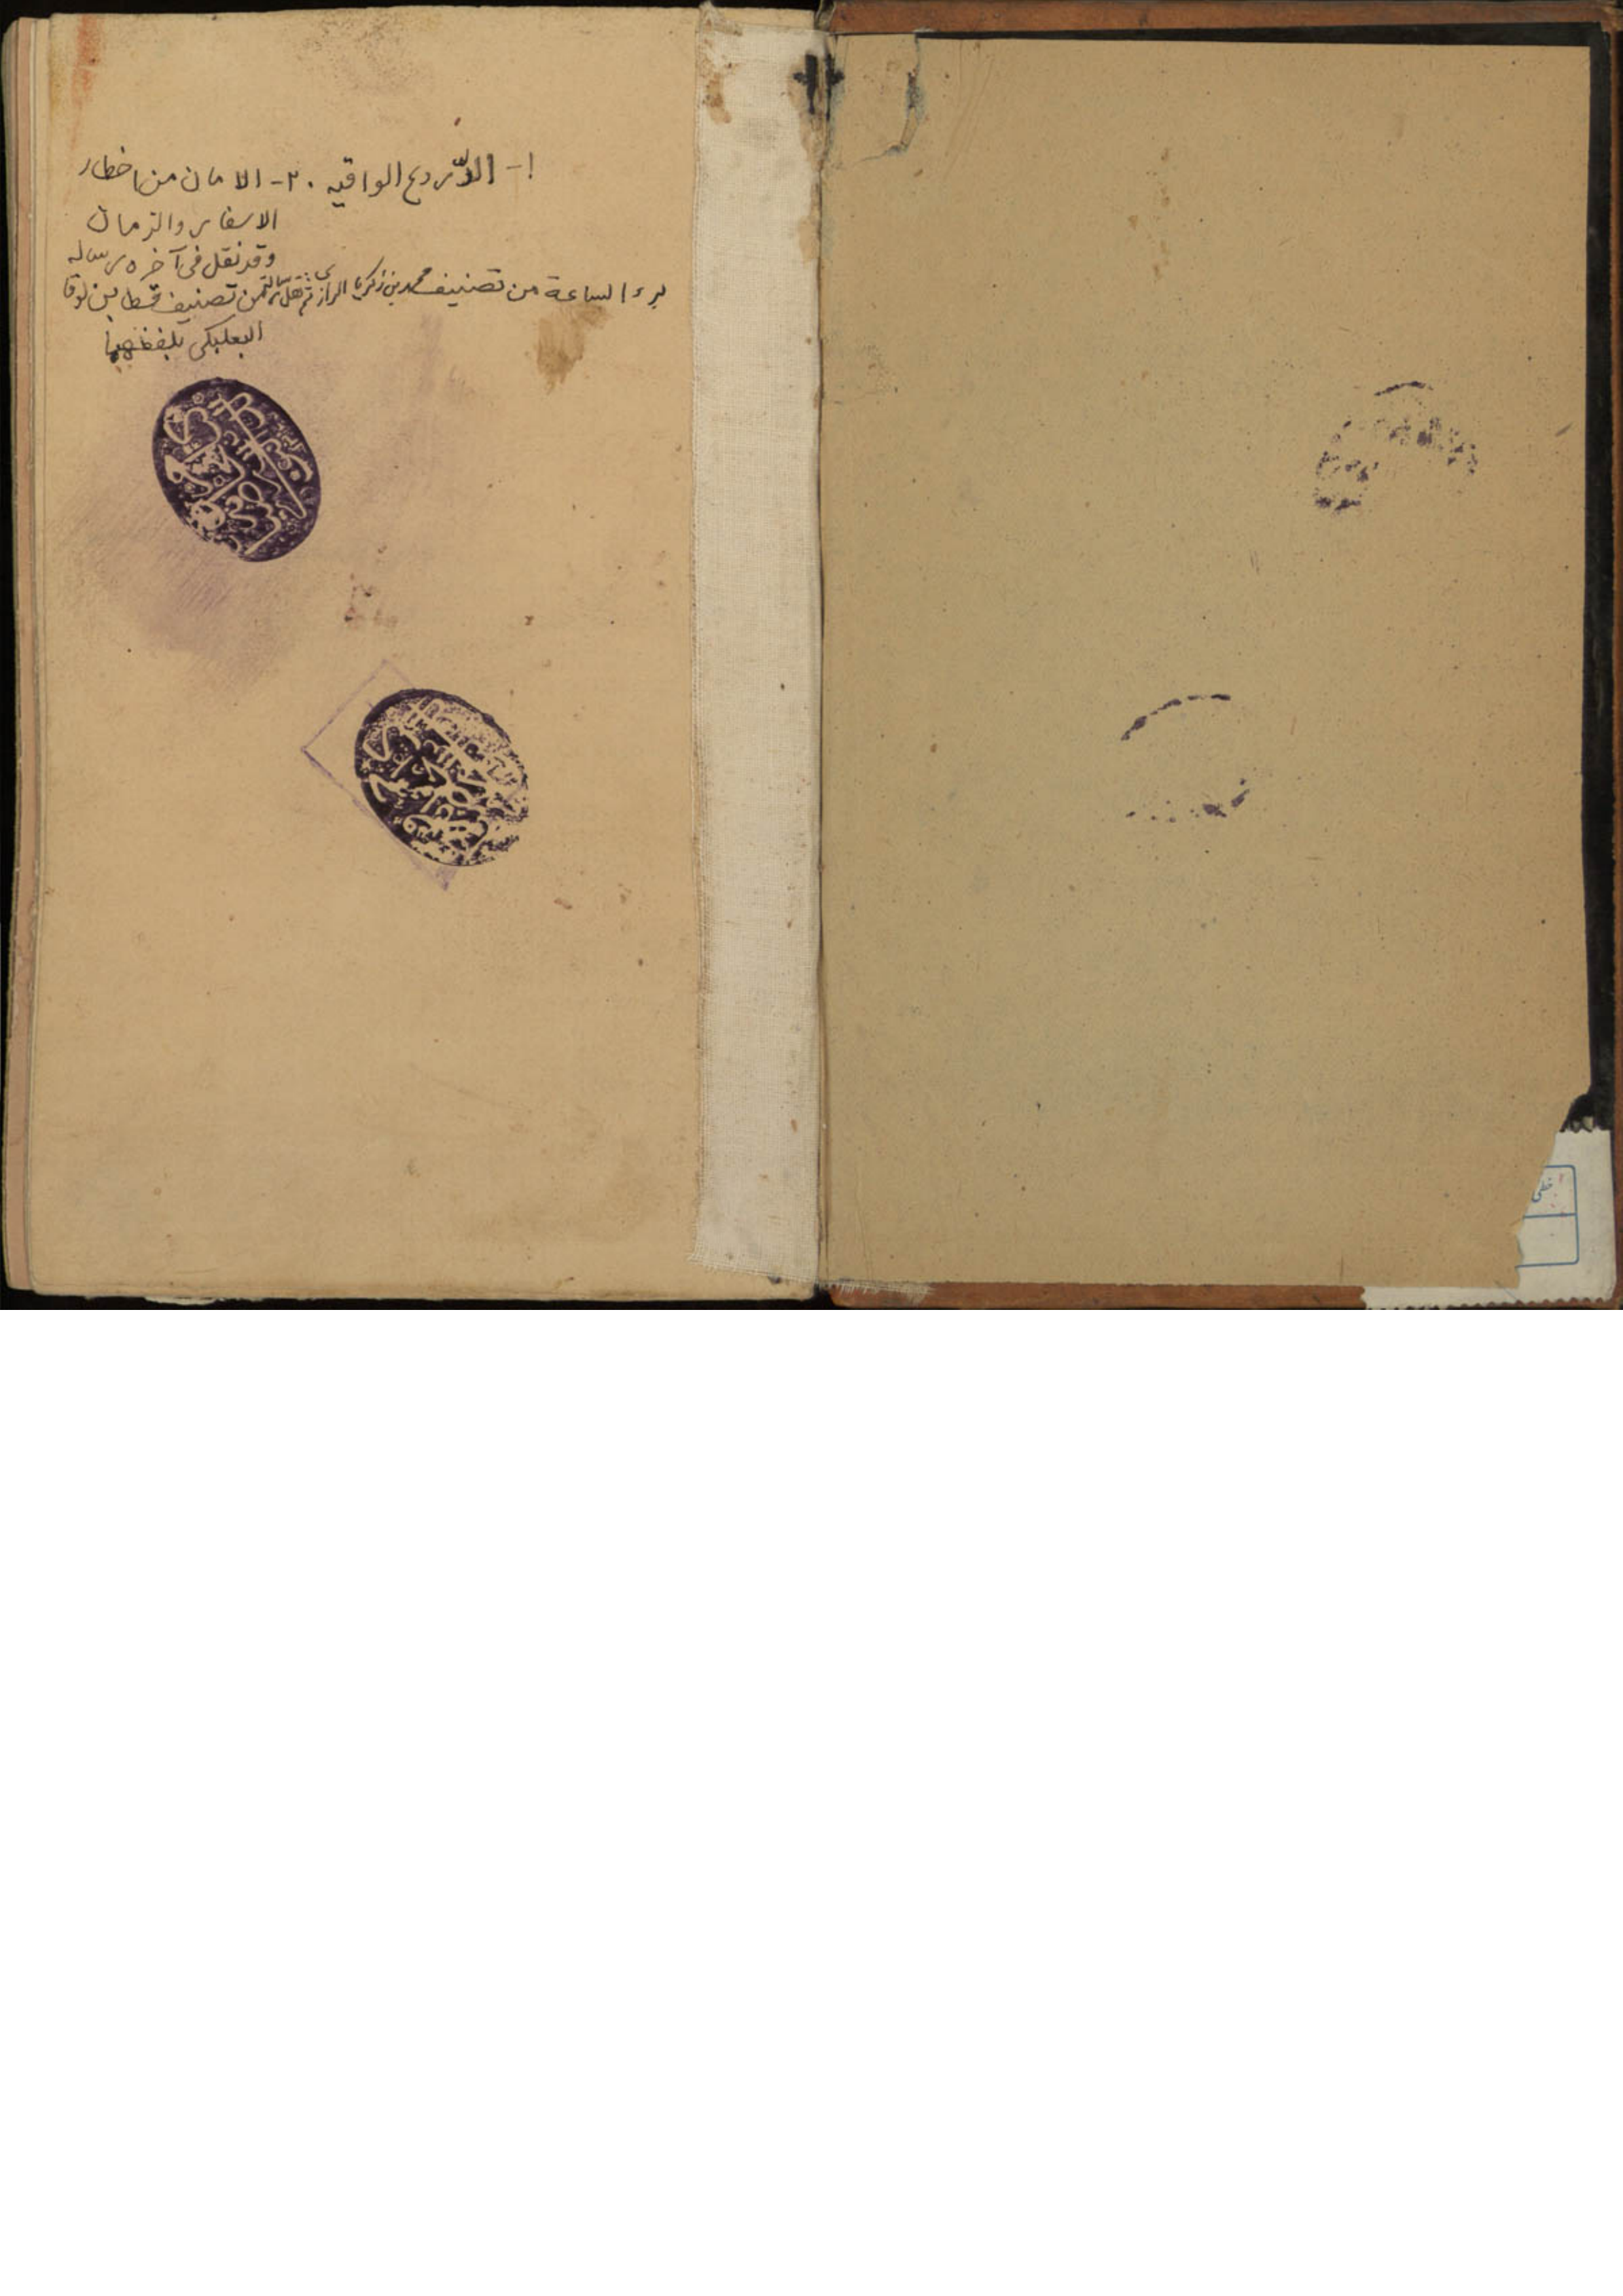 ١- الدّروع الواقيه ٠ ٢- الامان من اخطار
الاسفار والزمان
وقد نقل فى آخره رساله
برء الساعة من تصنيف محمد بن زكريا الرازى ثم نقل رسالة من تصنيف قسطا بن لوقا
البعلبكى بلفظهما
خطى